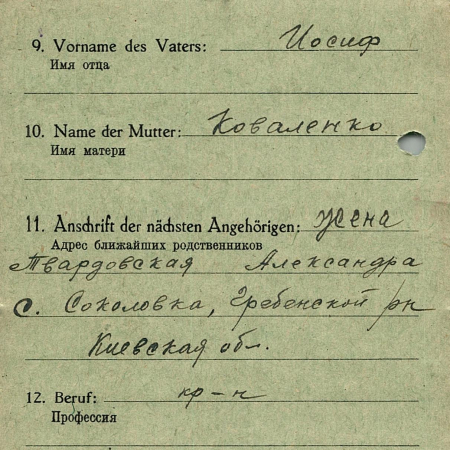 9. Vorname des Vaters: Иосиф
Имя отца
10. Name der Mutter: Коваленко
Имя матери
11. Anschrift der nächsten Angehörigen: жена
Адрес ближайших родственников
Твардовская Александра
с. Соколовка, Гребенской рн
Киевская обл.
12. Beruf: кр-н
Профессия